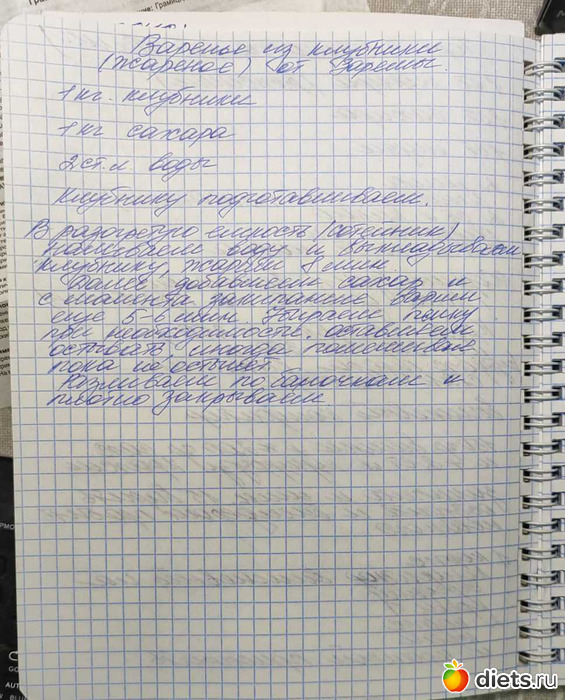 Варенье из клубники
(жареное) от Заремы.
1 кг. клубники
1 кг сахара
2 ст. л. воды
Клубнику подготавливаем.
В разогретую емкость (сотейник)
наливаем воду и выкладываем
клубнику, жарим 8 мин
Далее добавляем сахар и
с момента закипания варим
еще 5-6 мин. Убираем пенку
при необходимости. оставляем
остывать, иногда помешивая
пока не остынет
Разливаем по баночкам и
плотно закрываем
diets.ru